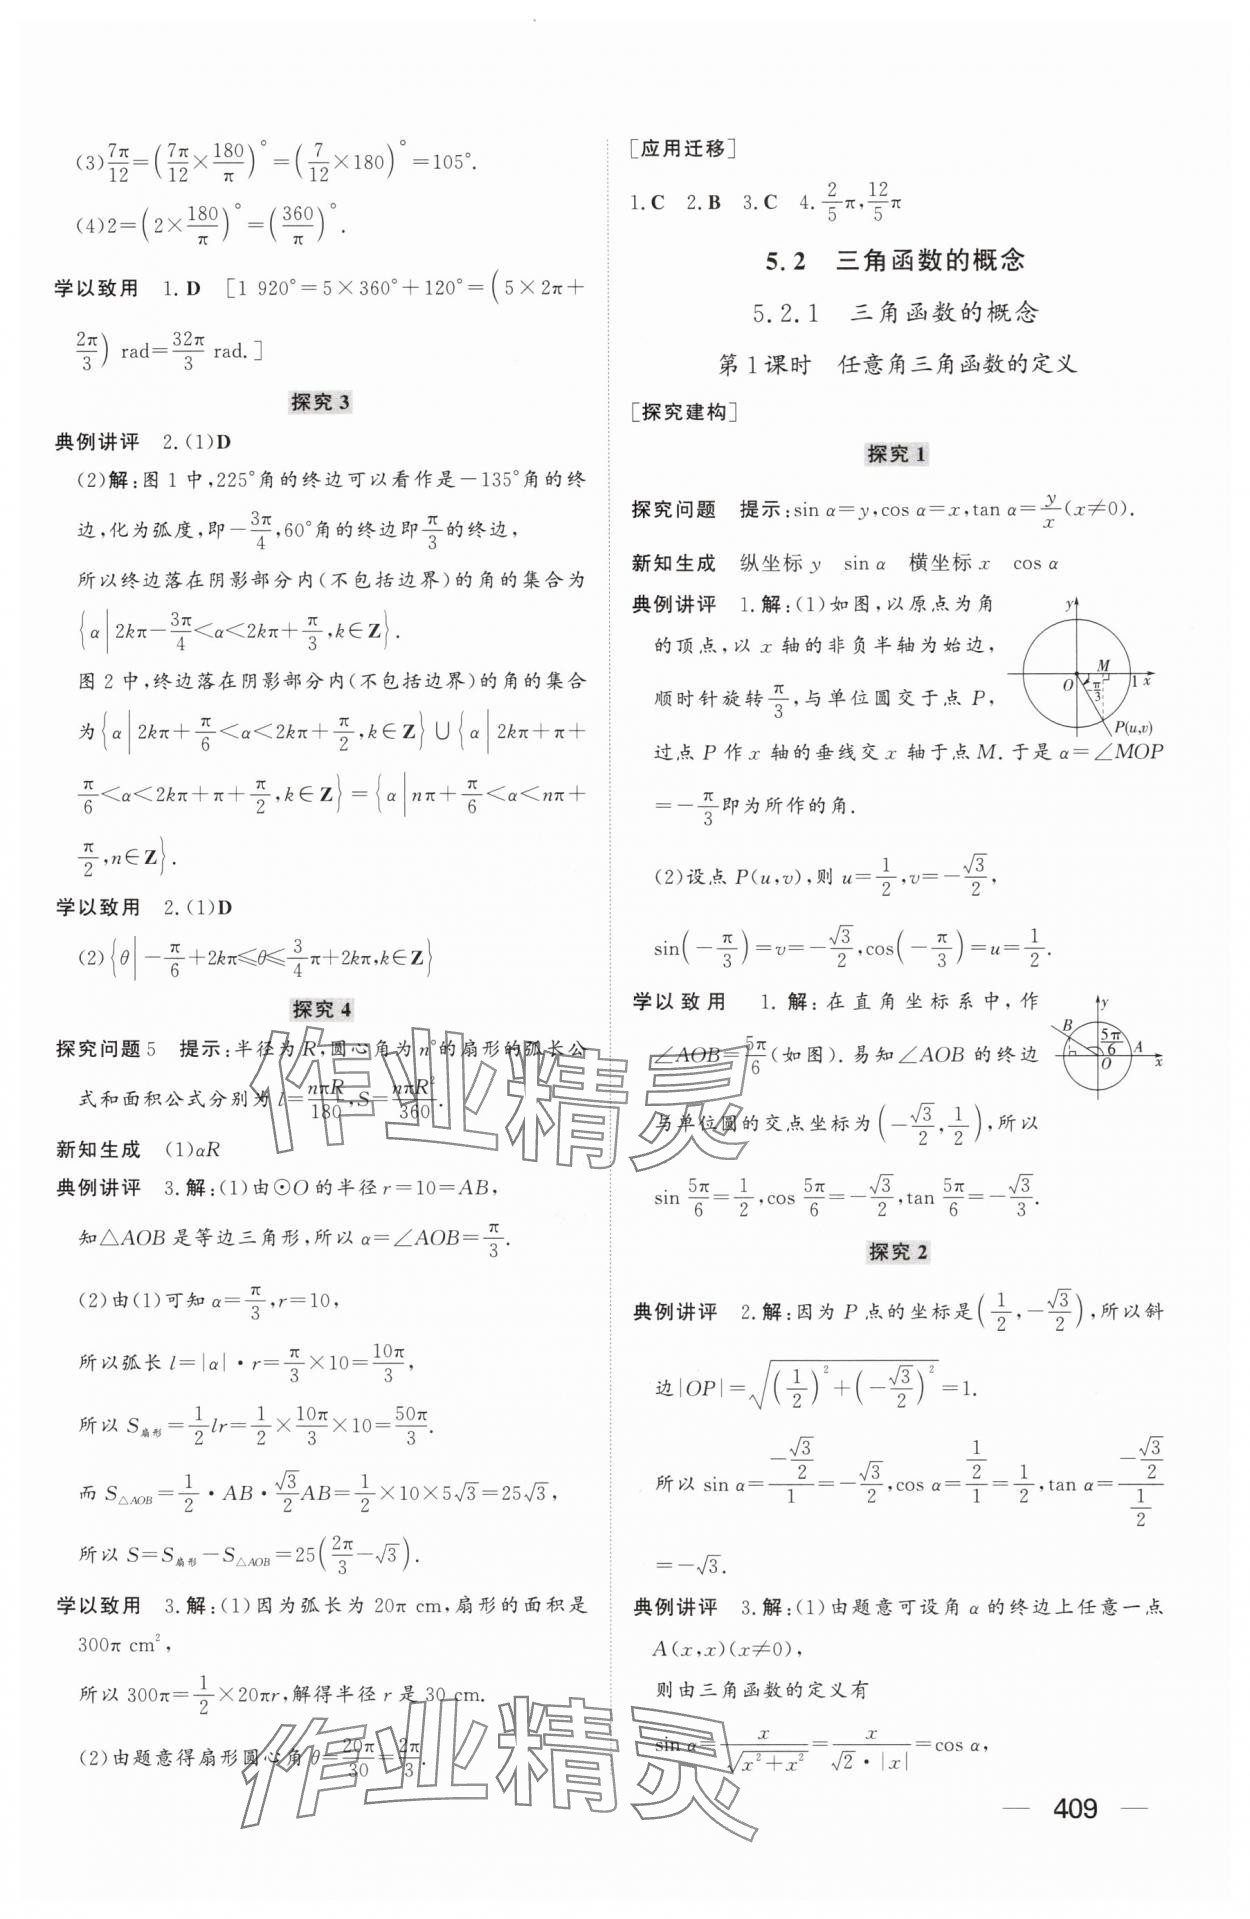 (3)7π/12=(7π/12×180/π)°=(7/12×180)°=105°.
(4)2=(2×180/π)°=(360/π)°.
学以致用 1.D [1 920°=5×360°+120°=(5×2π+
2π/3) rad=32π/3 rad.]
探究 3
典例讲评 2.(1)D
(2)解:图 1 中,225°角的终边可以看作是-135°角的终
边,化为弧度,即-3π/4,60°角的终边即π/3的终边,
所以终边落在阴影部分内(不包括边界)的角的集合为
{α|2kπ-3π/4<α<2kπ+π/3,k∈Z}.
图 2 中,终边落在阴影部分内(不包括边界)的角的集合
为{α|2kπ+π/6<α<2kπ+π/2,k∈Z}∪{α|2kπ+π+
π/6<α<2kπ+π+π/2,k∈Z}={α|nπ+π/6<α<nπ+
π/2,n∈Z}.
学以致用 2.(1)D
(2){θ|-π/6+2kπ≤θ≤3/4π+2kπ,k∈Z}
探究 4
探究问题 5 提示:半径为 R,圆心角为 n°的扇形的弧长公
式和面积公式分别为 l=nπR/180,S=nπR²/360.
新知生成 (1)αR
典例讲评 3.解:(1)由⊙O 的半径 r=10=AB,
知△AOB 是等边三角形,所以 α=∠AOB=π/3.
(2)由(1)可知 α=π/3,r=10,
所以弧长 l=|α|·r=π/3×10=10π/3,
所以 S扇形=1/2lr=1/2×10π/3×10=50π/3.
而 S△AOB=1/2·AB·√3/2AB=1/2×10×5√3=25√3,
所以 S=S扇形-S△AOB=25(2π/3-√3).
学以致用 3.解:(1)因为弧长为 20π cm,扇形的面积是
300π cm²,
所以 300π=1/2×20πr,解得半径 r 是 30 cm.
(2)由题意得扇形圆心角 θ=20π/30=2π/3.
[应用迁移]
1.C 2.B 3.C 4.2/5π,12/5π
5.2 三角函数的概念
5.2.1 三角函数的概念
第 1 课时 任意角三角函数的定义
[探究建构]
探究 1
探究问题 提示:sin α=y,cos α=x,tan α=y/x(x≠0).
新知生成 纵坐标 y sin α 横坐标 x cos α
典例讲评 1.解:(1)如图,以原点为角
的顶点,以 x 轴的非负半轴为始边,
顺时针旋转π/3,与单位圆交于点 P,
过点 P 作 x 轴的垂线交 x 轴于点 M.于是 α=∠MOP
=-π/3即为所作的角.
y
M
O
-π/3
1
x
P(u,v)
(2)设点 P(u,v),则 u=1/2,v=-√3/2,
sin(-π/3)=v=-√3/2,cos(-π/3)=u=1/2.
学以致用 1.解:在直角坐标系中,作
∠AOB=5π/6(如图).易知∠AOB 的终边
与单位圆的交点坐标为(-√3/2,1/2),所以
sin 5π/6=1/2,cos 5π/6=-√3/2,tan 5π/6=-√3/3.
y
B
5π/6
A
O
x
探究 2
典例讲评 2.解:因为 P 点的坐标是(1/2,-√3/2),所以斜
边|OP|=√((1/2)²+(-√3/2)²)=1.
所以 sin α=(-√3/2)/1=-√3/2,cos α=(1/2)/1=1/2,tan α=(-√3/2)/(1/2)
=-√3.
典例讲评 3.解:(1)由题意可设角 α 的终边上任意一点
A(x,x)(x≠0),
则由三角函数的定义有
sin α=x/√(x²+x²)=x/(√2·|x|)=cos α,
— 409 —
作业精灵
作业精灵